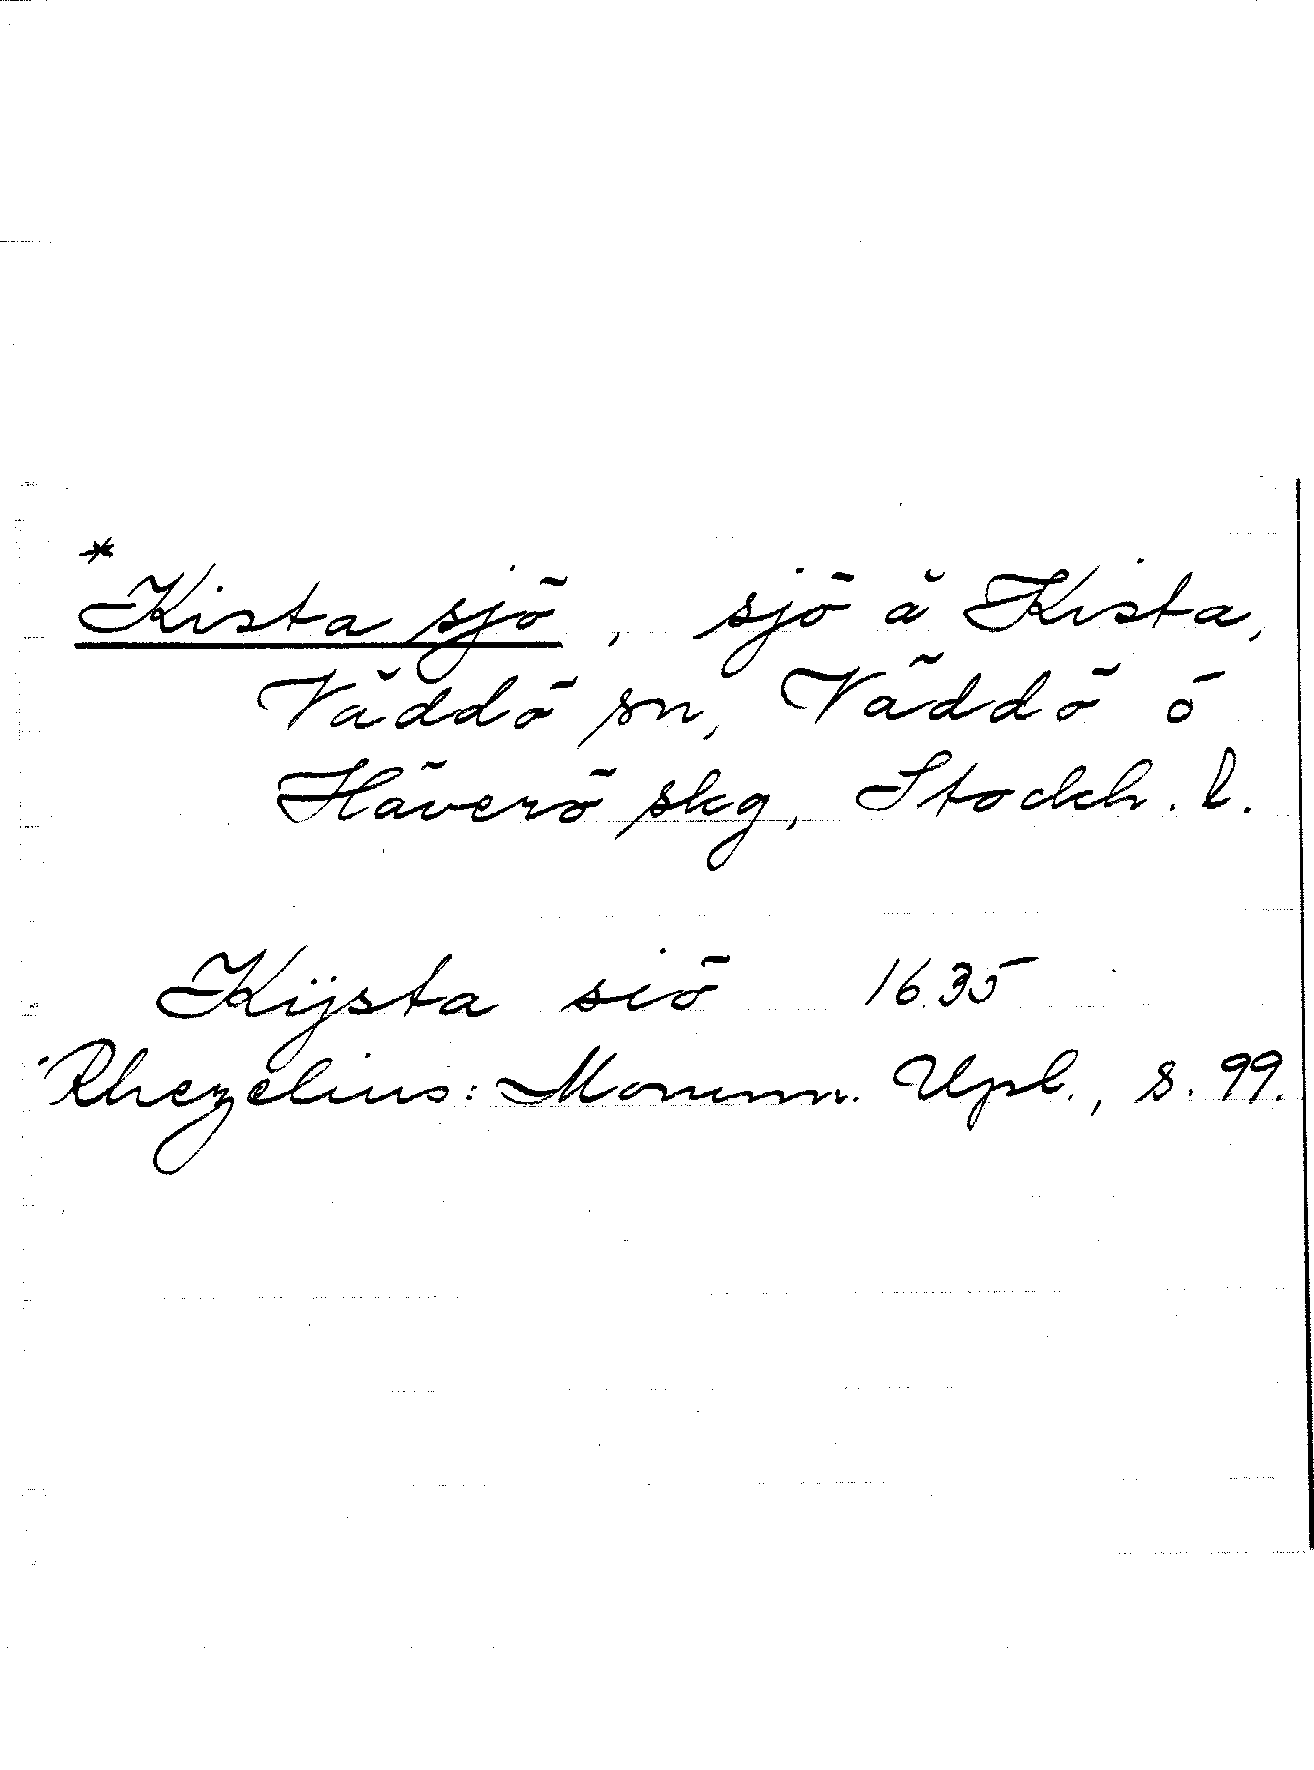 *
Kista sjö, sjö å Kista,
Väddö sn, Väddö o
Häverö skg, Stockh. l.
Kijsta siö 1635
Rhezelius: Monum. Upl., s. 99.